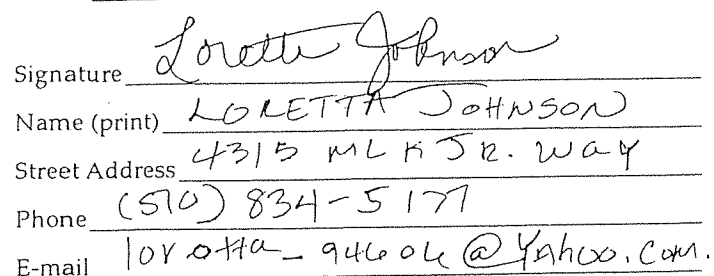 Signature Loretta Johnson
Name (print) LORETTA JOHNSON
Street Address 4315 MLK JR. WAY
Phone (510) 834-5177
E-mail loretta_94604@Yahoo.com.